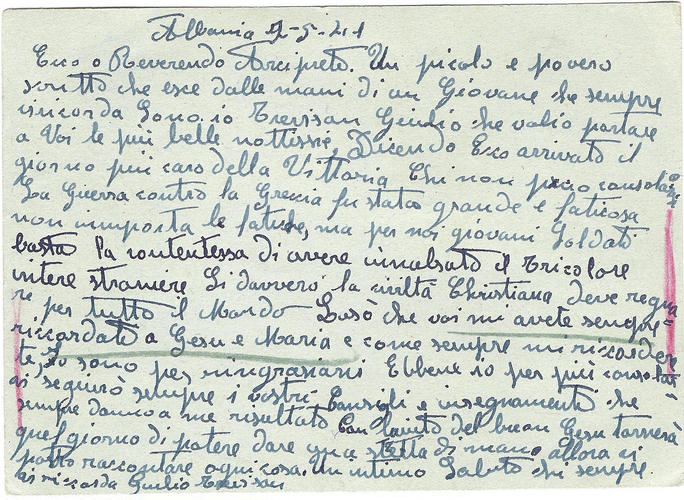 Albania 2-5-41
Ecco o Reverendo Arciprete. Un picolo e povero
scritto che esce dalle mani di un Giovane che sempre
vi ricorda Sono io Trevisan Giulio che volio portare
a Voi le più belle nottissie, Dicendo Ecco arrivato il
giorno più caro della Vittoria Chi non puuo consolarsi
La Guerra contro la Grecia fu stata grande e faticosa
non importa le fatiche, ma per noi giovani Soldati
basta la contentessa di avere innalsato il Tricolore
in tere straniere Si davvero la civiltà Christiana deve regna
re per tutto il Mondo Lo sò che voi mi avete sempre
riccordato a Gesu e Maria e come sempre mi ricordere
te, Io sono per ringrasiarvi Ebbene io per più consolar=
vi seguirò sempre i vostri Consigli e insegnamenti che
sempre danno a me risultato Con l'aiuto del buon Gesu tornerà
quel giorno di potere dare una stretta di mano allora vi
potrò raccontare ogni cosa. Un intimo Saluto chi sempre
vi riccorda Giulio Trevisan